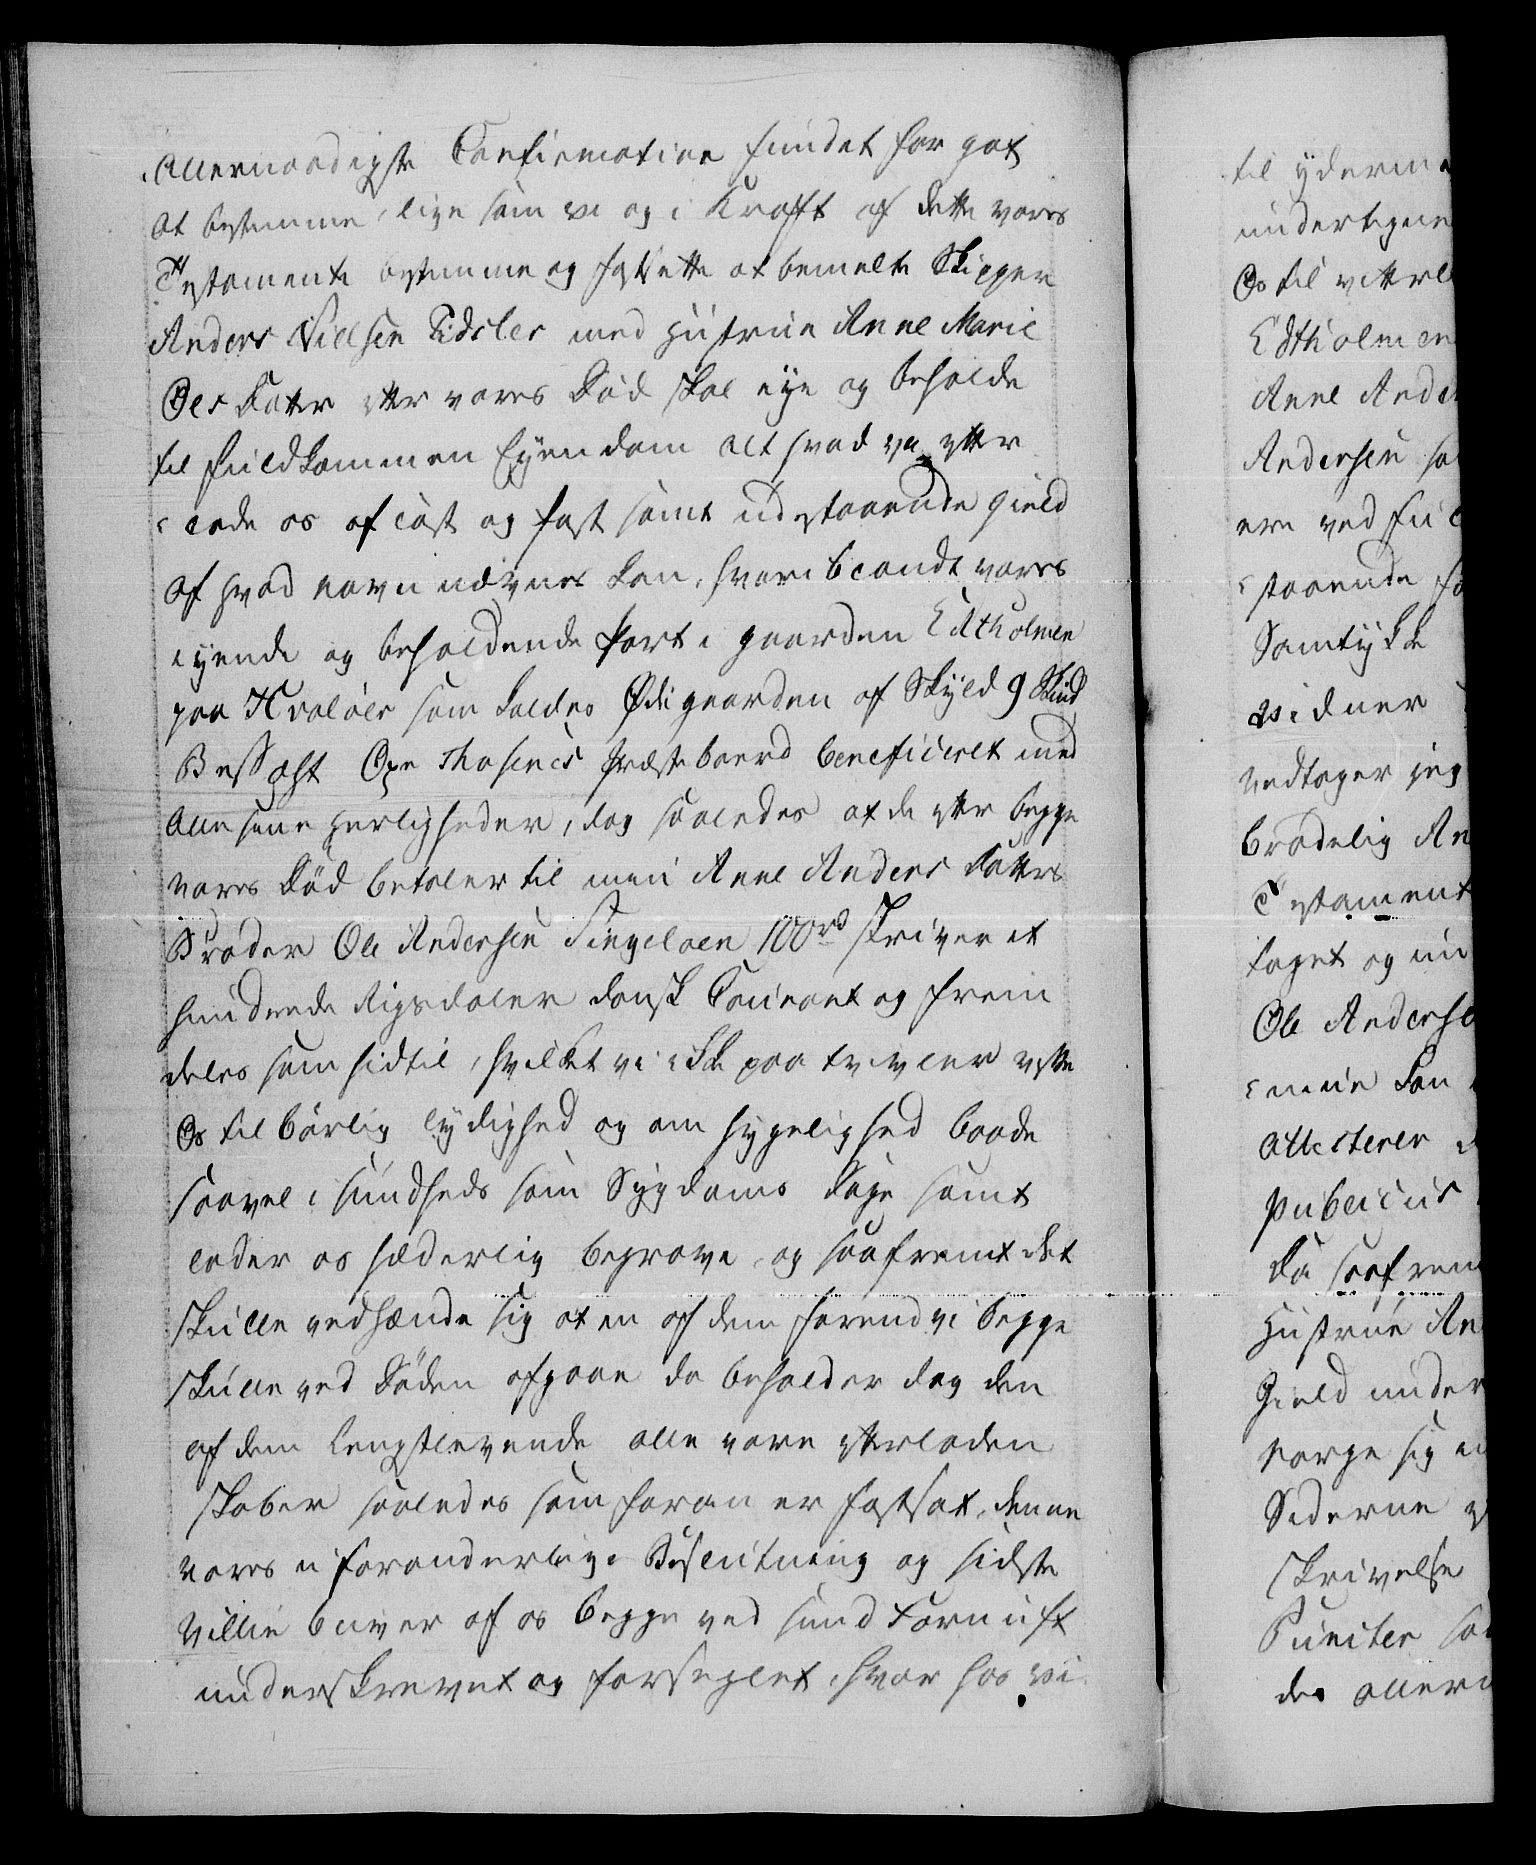 Allernaadigste Confirmation fundet for got
at bestemme, lige som vi og i Krafft af dette vores
Testamente bestemme og fastsette at bemelte Skipper
Anders Nielsen Tidsler med Hustrue Anne Marie
Ols Datter etter vores Død skal eye og beholde
til fuldkommen Eyendom alt hvad vi etter
lade os af løst og fast samt udestaaende gield
af hvad navn nævnes kan, hvori blandt vores
eyende og beholdende Part i gaarden Edtholmen
paa Hvaløer som kaldes Ødegaarden af Skyld 9 Skind
Østføe Præsteboerd beneficeret med
Alle sine Herligheder, dog saaledes at de etter begge
vores Død betaler til min Anne Anders Datters
Broder Ole Andersen Singeloen 100rd skriver et
hundrede Rigsdaler dansk Courant og frem
deles som hidtil, hvilket vi ikke paa tvivler yde
Os tilbørlig lydighed og om hyggelighed baade
saavel i Sundheds som Sygdoms Dage samt
lader os hæderlig begrave, og saafremt det
skulle vedhænde sig at en af dem forend vi begge
skulle ved Døden afgaae da beholder dog den
af dem længstlevende alle vore etterladen
skaber saaledes som foran er fastsat, denne
vores uforanderlige Besluttning og sidste
Villie bliver af os begge ved sund Fornuft
underskrevet og forseglet, hvor hos vi
til yderme
undertegne
Os til vitterl
Edtholmen
Anne Ander
Andersen
ere ved ful
staaende
Samtykke
vidner
vedtager jeg
broderlig An
Testament
taget og un
Ole Anderse
nue Son
Attesterer
Publicus
Da saafrem
Hustrue An
Gield under
Norge sig
Siderne
skrivelse
Puncter
des allern